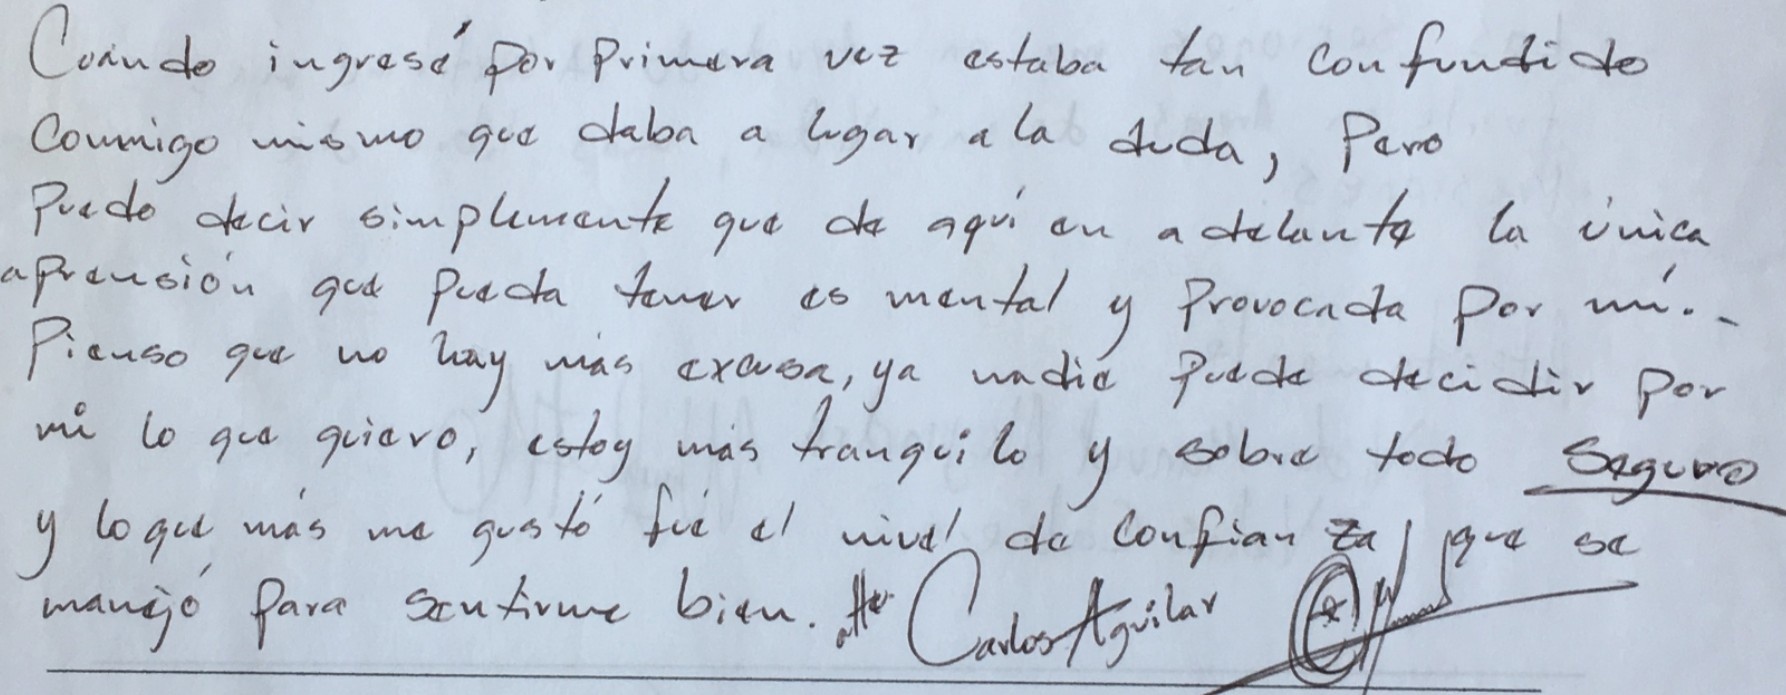 Cuándo ingresé por primera vez estaba tan confundido
Conmigo mismo que daba a lugar a la duda, Pero
Puedo decir simplemente que de aquí en adelante la única
aprensión que pueda tener es mental y Provocada por mí.-
Pienso que no hay más excusa, ya nadie puede decidir por
mi lo que quiero, estoy más tranquilo y sobre todo Seguro
y lo que más me gustó fué el nivel de Confianza que se
manejó para sentirme bien. Atte Carlos Aguilar